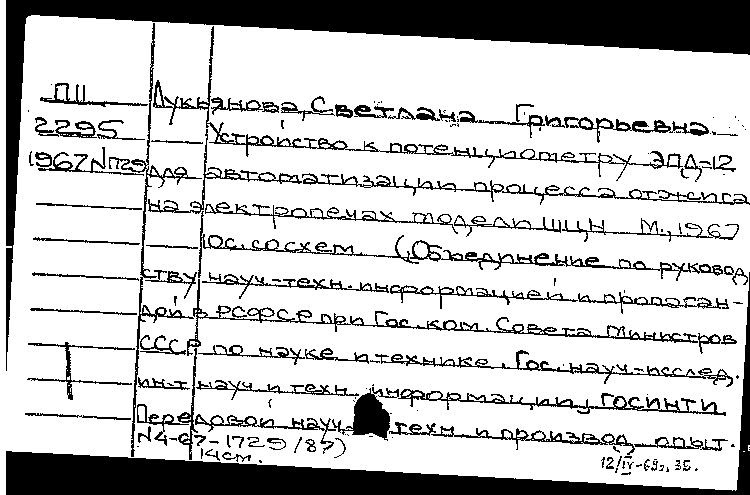 ПЦ Лукьянова, Светлана Григорьевна.
2295 Устройство к потенциометру ЭПД-12
1967 N1729 для автоматизации процесса отжига
на электропечах модели ШЦН М., 1967
10с. со схем. (Объединение по руковод
ству науч.-техн. информацией и пропаган-
дой в РСФСР при Гос. ком. Совета Министров
СССР по науке и технике. Гос. науч.-исслед.
ин-т науч и техн информации, ГОСИНТИ
Передовой науч- техн и производ опыт.
N4-67-1729/87)
14см.
12/IV-68г. ЗБ.